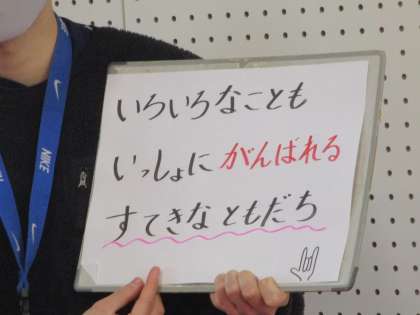 いろいろなことも
いっしょに がんばれる
すてきな ともだち
NIKE